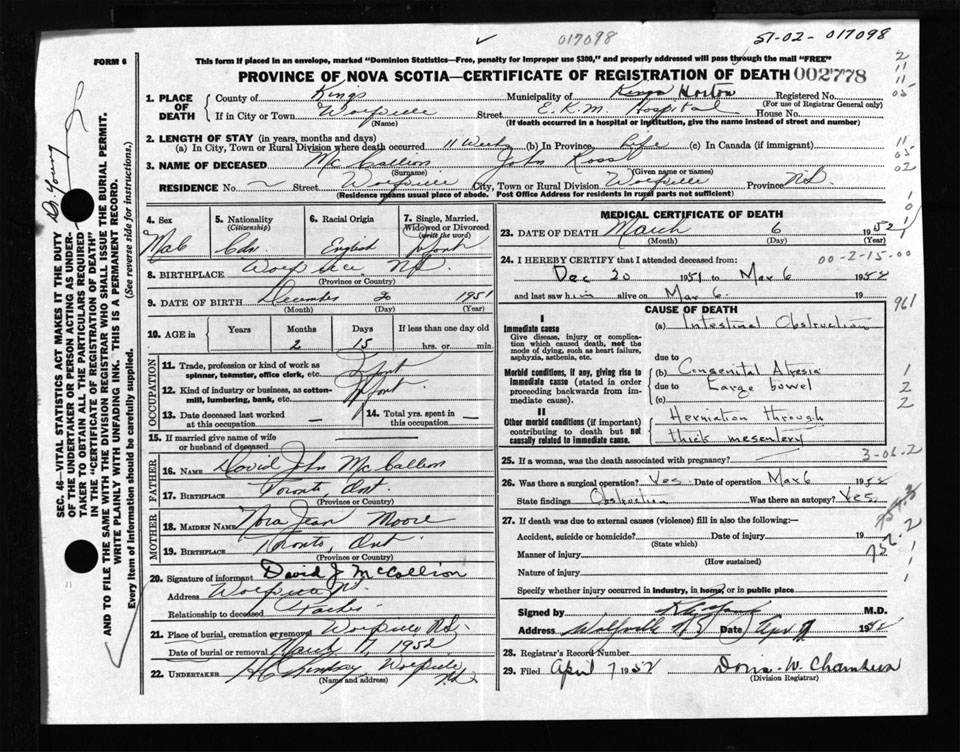 017098
ST-02-017098
FORM 6
This form if placed in an envelope, marked "Dominion Statistics—Free, penalty for improper use $300," and properly addressed will pass through the mail "FREE"
PROVINCE OF NOVA SCOTIA—CERTIFICATE OF REGISTRATION OF DEATH 002778
1. PLACE OF DEATH
County of Kings Municipality of Kings Horton Registered No.
(For use of Registrar General only)
If in City or Town Wolfville Street E.K.M. Hospital House No.
(Name) (If death occurred in a hospital or institution, give the name instead of street and number)
2. LENGTH OF STAY (in years, months and days)
(a) In City, Town or Rural Division where death occurred 11 Weeks (b) In Province Life (c) In Canada (if immigrant)
3. NAME OF DECEASED McCallion John Ross
(Surname) (Given name or names)
RESIDENCE No. Street Wolfville City, Town or Rural Division Wolfville Province N.S.
(Residence means usual place of abode. Post Office Address for residents in rural parts not sufficient)
4. Sex 5. Nationality (Citizenship) 6. Racial Origin 7. Single, Married, Widowed or Divorced (write the word)
Male Cdn. English
8. BIRTHPLACE Wolfville N.S.
(Province or Country)
9. DATE OF BIRTH December 20 1951
(Month) (Day) (Year)
10. AGE in Years Months Days If less than one day old
2 15 hrs. or min.
OCCUPATION
11. Trade, profession or kind of work as spinner, teamster, office clerk, etc.
12. Kind of industry or business, as cotton-mill, lumbering, bank, etc.
13. Date deceased last worked at this occupation
14. Total yrs. spent in this occupation
15. If married give name of wife or husband of deceased
FATHER
16. NAME David John McCallion
17. BIRTHPLACE Toronto, Ont.
(Province or Country)
MOTHER
18. MAIDEN NAME Nora Jean Moore
19. BIRTHPLACE Toronto, Ont.
(Province or Country)
20. Signature of informant David J McCallion
Address Wolfville N.S.
Relationship to deceased Father
21. Place of burial, cremation or removal Wolfville N.S.
Date of burial or removal March 1952
22. UNDERTAKER Wolfville N.S.
(Name and address)
MEDICAL CERTIFICATE OF DEATH
23. DATE OF DEATH March 6 1952
(Month) (Day) (Year)
24. I HEREBY CERTIFY that I attended deceased from: 00-2-15-00
Dec 20 1951 to Mar 6 1952
and last saw him alive on Mar 6. 19
CAUSE OF DEATH
I
Immediate cause
Give disease, injury or complication which caused death, not the mode of dying, such as heart failure, asphyxia, asthenia, etc.
(a) Intestinal Obstruction
due to
Morbid conditions, if any, giving rise to immediate cause (stated in order proceeding backwards from immediate cause).
(b) Congenital Atresia
due to Large bowel
(c)
II
Other morbid conditions (if important) contributing to death but not causally related to immediate cause.
Herniation through
thick mesentery
25. If a woman, was the death associated with pregnancy? 3-06-2
26. Was there a surgical operation? Yes. Date of operation Mar 6 1952
State findings Obstruction Was there an autopsy? Yes.
27. If death was due to external causes (violence) fill in also the following:—
Accident, suicide or homicide? Date of injury 19
(State which)
Manner of injury
(How sustained)
Nature of injury
Specify whether injury occurred in industry, in home, or in public place
Signed by M.D.
Address Wolfville N.S. Date Apr 7 1952
28. Registrar's Record Number
29. Filed April 7 1952 Doris W. Chambers
(Division Registrar)
961
SEC. 46—VITAL STATISTICS ACT MAKES IT THE DUTY OF THE UNDERTAKER OR PERSON ACTING AS UNDERTAKER TO OBTAIN ALL THE PARTICULARS REQUIRED IN THE "CERTIFICATE OF REGISTRATION OF DEATH" AND TO FILE THE SAME WITH THE DIVISION REGISTRAR WHO SHALL ISSUE THE BURIAL PERMIT.
WRITE PLAINLY WITH UNFADING INK. THIS IS A PERMANENT RECORD.
Every item of information should be carefully supplied. (See reverse side for instructions.)